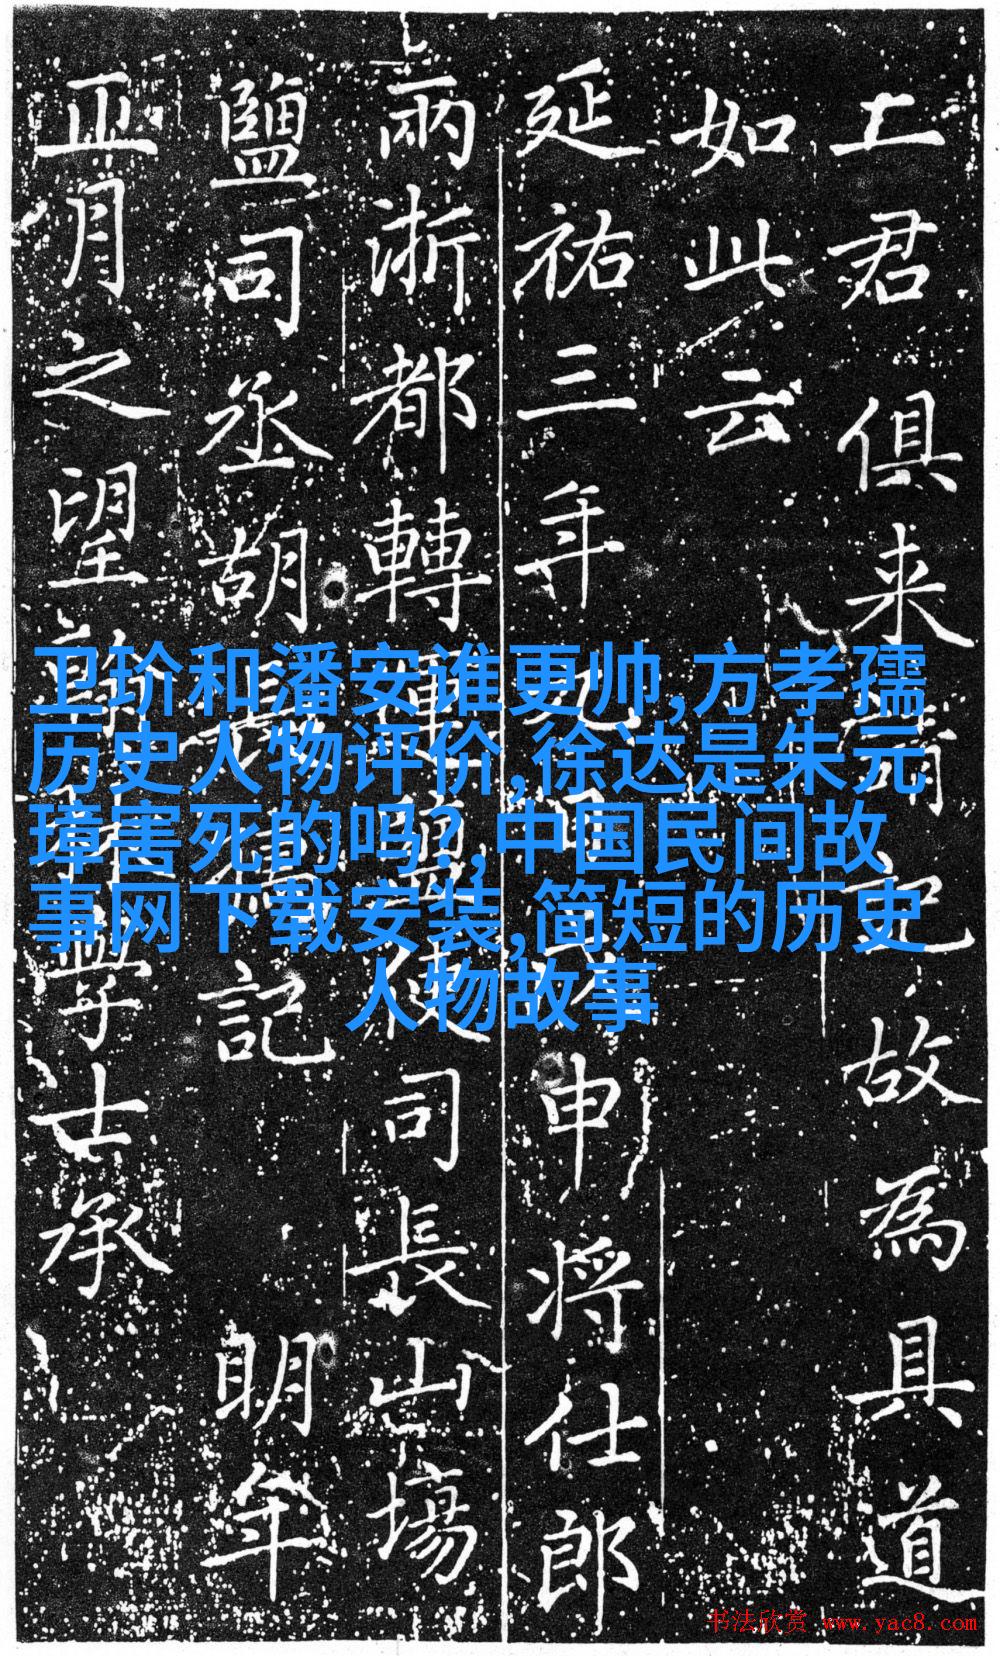 君俱来 記故為具道
如此云
延祐三年 申将仕郎
兩浙都轉運鹽使司長山場
鹽司丞胡長孺記 明年
正月之望 學士承
卫玠和潘安谁更帅,方孝孺
历史人物评价,徐达是朱元
璋害死的吗?,中国民间故
事网下载安装,简短的历史
人物故事
书法欣赏 www.yac8.com